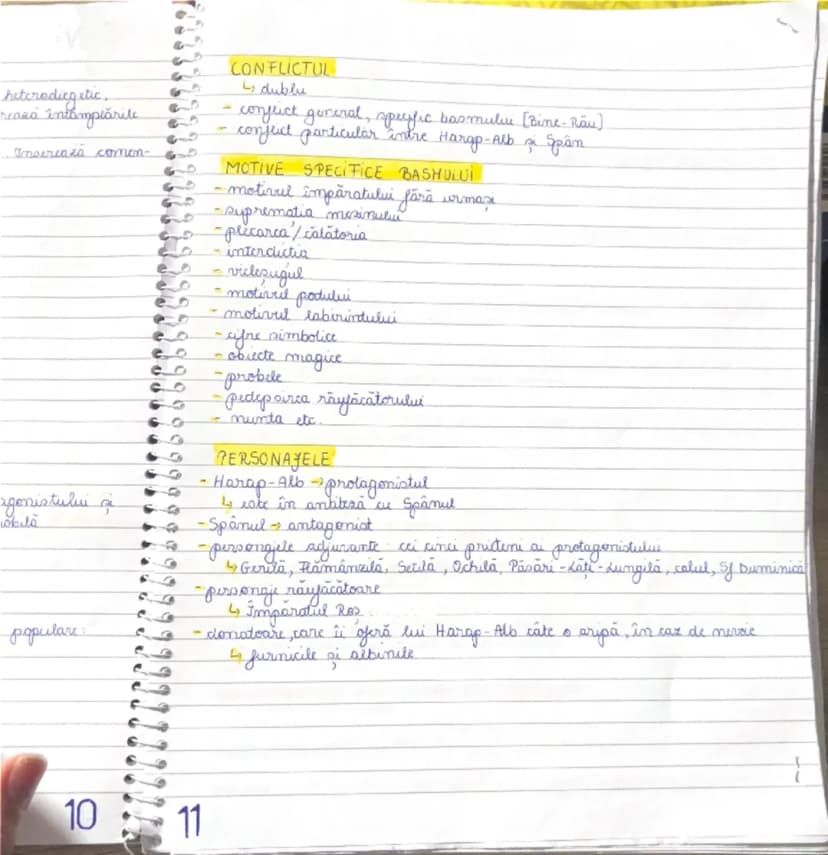 heterodiegetic,
rează întâmplările
Inserează comen-
agonistului și
populare:
10
CONFLICTUL
↳ dublu
- conflict general, specific basmului [Bine-Rău]
- conflict particular între Harap-Alb și Spân
MOTIVE SPECIFICE BASMULUI
- motivul împăratului fără urmași
- supremația mezinului
- plecarea / călătoria
- interdicția
- vicleșugul
- motivul podului
- motivul labirintului
- cifre simbolice
- obiecte magice
- probele
- pedepsirea răufăcătorului
- nunta etc.
PERSONAJELE
- Harap-Alb → protagonistul
↳ este în antiteză cu Spânul
- Spânul → antagonist
- personajele adjuvante: cei cinci prieteni ai protagonistului
↳ Gerilă, Flămânzilă, Setilă, Ochilă, Păsări-Lăți-Lungilă, calul, Sf Duminică
- personaje răufăcătoare
↳ Împăratul Roș
- donatoare, care îi oferă lui Harap-Alb câte o aripă, în caz de nevoie
↳ furnicile și albinile
11